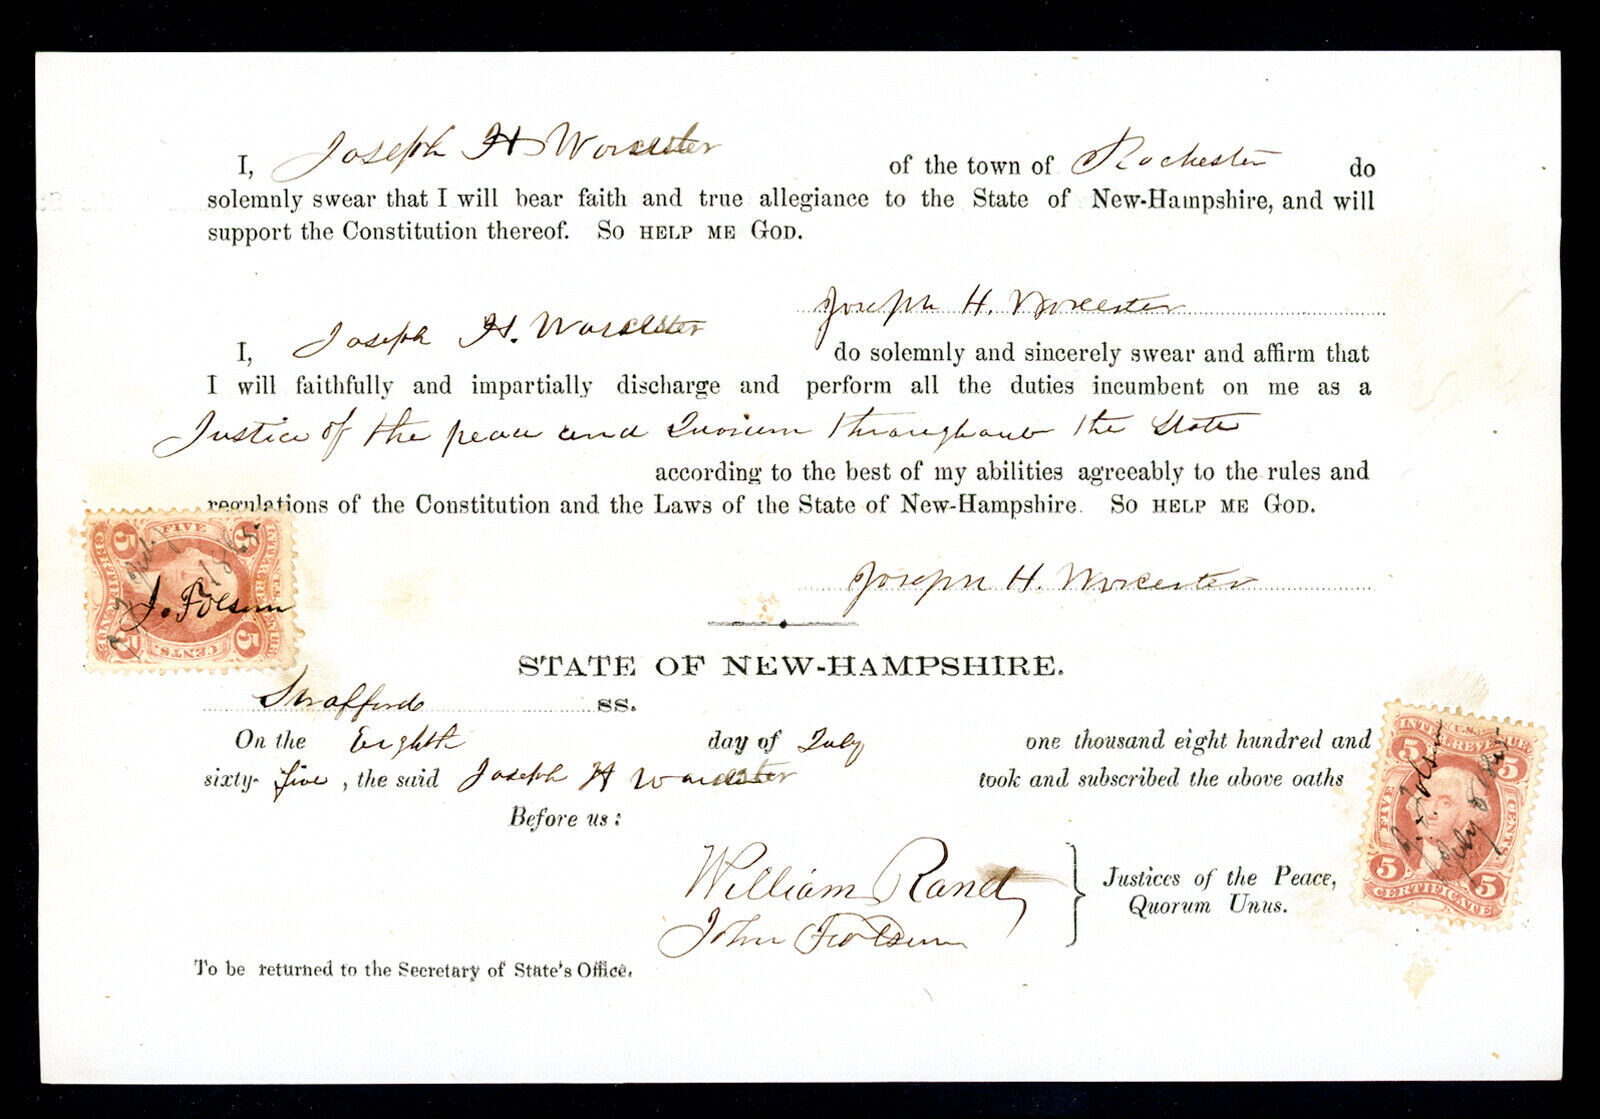 I, Joseph H Worcester of the town of Rochester do
solemnly swear that I will bear faith and true allegiance to the State of New-Hampshire, and will
support the Constitution thereof. So help me God.
Joseph H. Worcester
I, Joseph H. Worcester do solemnly and sincerely swear and affirm that
I will faithfully and impartially discharge and perform all the duties incumbent on me as a
Justice of the peace and Quorum throughout the State
according to the best of my abilities agreeably to the rules and
regulations of the Constitution and the Laws of the State of New-Hampshire. So help me God.
Joseph H. Worcester
FIVE
5 5
CERTIFICATE
INTER. REVENUE
U.S.
5 5
CENTS.
July
1865.
J. Folsom
STATE OF NEW-HAMPSHIRE.
Strafford SS.
On the Eighth day of July one thousand eight hundred and
sixty-five, the said Joseph H Worcester took and subscribed the above oaths
Before us:
William Rand
John Folsom
Justices of the Peace,
Quorum Unus.
To be returned to the Secretary of State's Office.
U.S.
INTER. REVENUE
5 5
FIVE CENTS
5 5
CERTIFICATE
J. Folsom
July 8 1865